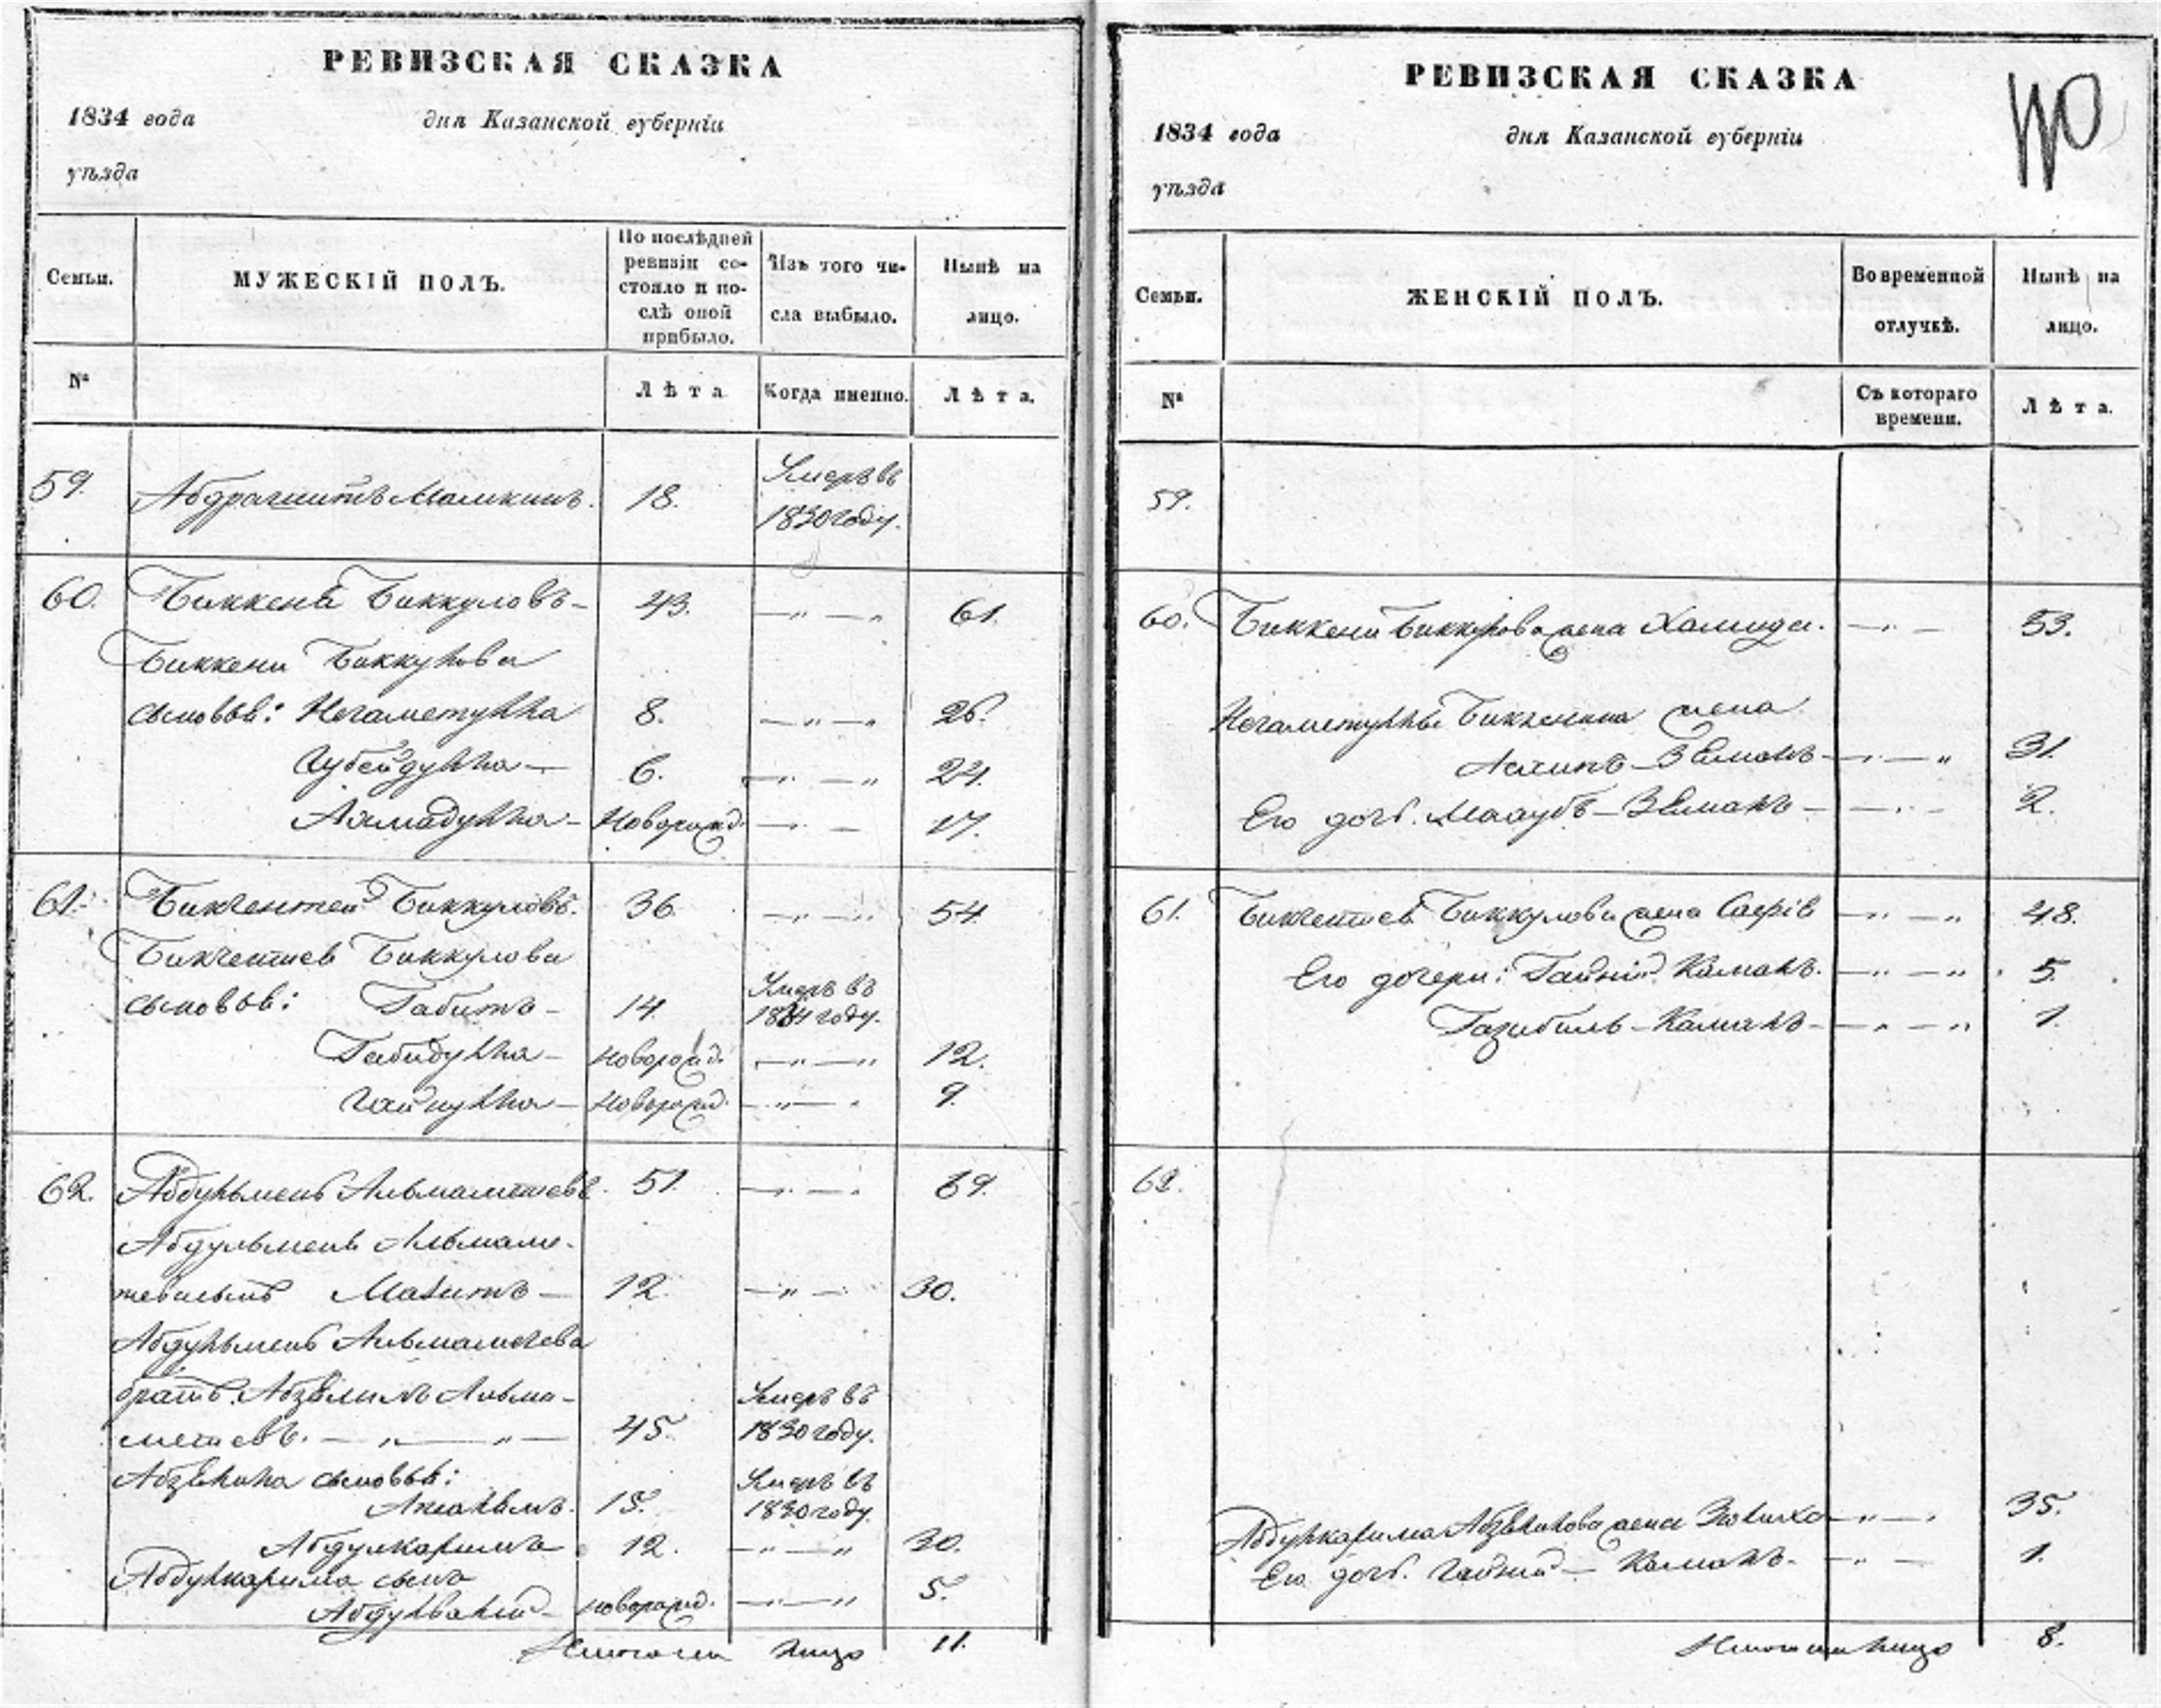 РЕВИЗСКАЯ СКАЗКА
1834 года дня Казанской губерніи
уѣзда
Семьи. МУЖЕСКІЙ ПОЛЪ. По послѣдней ревизіи состояло и послѣ оной прибыло. Изъ того числа выбыло. Нынѣ на лицо.
№ Лѣта Когда именно. Лѣта.
59. Абдрашитъ Мамкинъ. 18. Умеръ въ
1830 году.
60. Биккеней Биккуловъ – 43. — „ — „ 61.
Биккени Биккулова
сыновья: Негаметулла 8. — „ — „ 26.
Губейдулла — 6. — „ — „ 24.
Ахмадулла – Новорожд. — „ — 17.
61. Бикчентей Биккуловъ. 36. — „ — „ 54.
Бикчентея Биккулова
сыновья: Габитъ – 14. Умеръ въ
1831 году.
Габидулла – новорожд. — „ — „ 12.
Гайнулла – новорожд. — „ — „ 9.
62. Абдульменъ Альмаметевъ. 51. — „ — „ 69.
Абдульменя Альмаме-
тева сынъ Мазитъ – 12. — „ — 30.
Абдульменя Альмаметева
братъ Абзелилъ Альма-
метевъ. — „ — „ — 45. Умеръ въ
1830 году.
Абзелила сыновья:
15. Умеръ въ
1830 году.
Абдулкаримъ 12. — „ — „ 30.
Абдулкарима сынъ
Абдулвалій – новорожд. — „ — „ 5.
Итого на лицо 11.
РЕВИЗСКАЯ СКАЗКА
1834 года дня Казанской губерніи
уѣзда
Семьи. ЖЕНСКІЙ ПОЛЪ. Во временной отлучкѣ. Нынѣ на лицо.
№ Съ котораго времени. Лѣта.
59.
60. Биккени Биккулова жена Хамида. — „ — 53.
Негаметуллы Биккенина жена
Зямалъ — „ — „ 31.
Его дочь. Зямалъ — — „ — 2.
61. Бикчентея Биккулова жена Сафія — „ — „ 48.
Его дочери: Гайни Камалъ. — „ — „ 5.
Камалъ – — „ — „ 1.
62.
Абдулкарима Абзелилова жена Зюлиха — „ — 35.
Его дочь. Гайни — Камалъ. — „ — 1.
Итого на лицо 8.